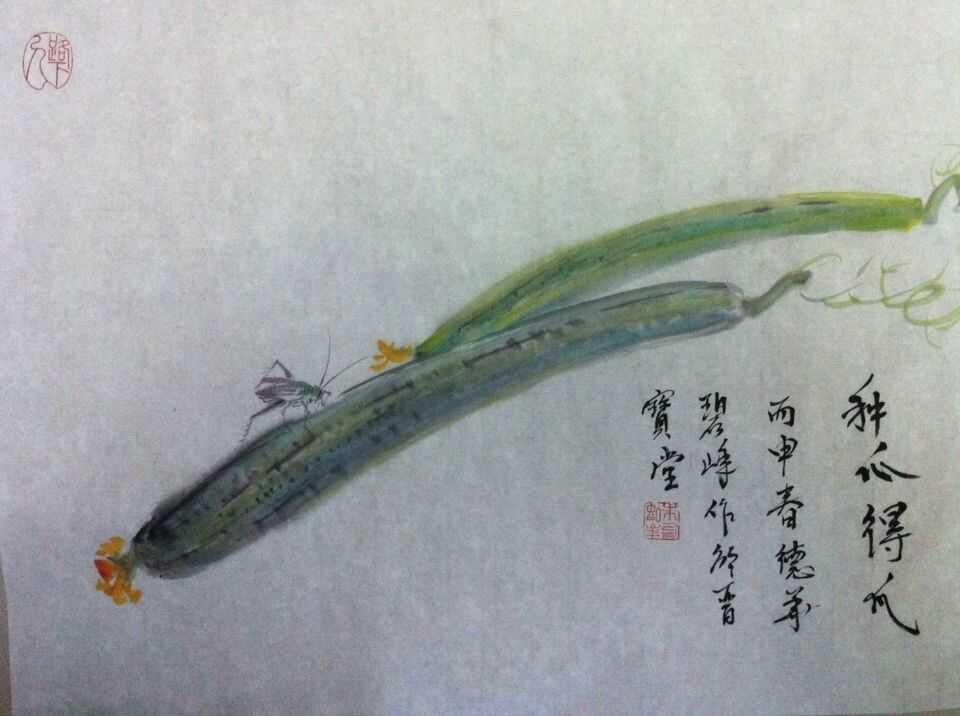 种瓜得瓜
丙申春德
碧峰作於晋
寶堂